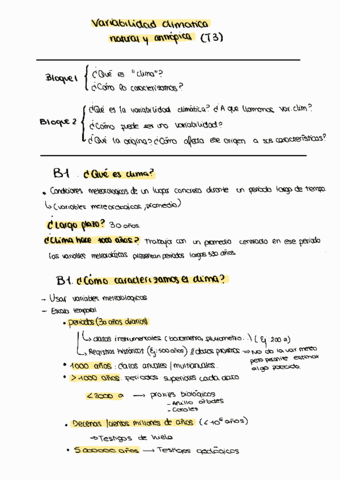 Variabilidad climática
natural y antrópica (T3)
Bloque 1
¿Qué es "clima"?
¿Cómo lo caracterizamos?
Bloque 2
¿Qué es la variabilidad climática? ¿A que llamamos var. clim?
¿Cómo puede ser una variabilidad?
¿Qué la origina? ¿Cómo afecta ese origen a sus características?
B1. ¿Qué es clima?
• Condiciones meteorológicas de un lugar concreto durante un periodo largo de tiempo
↳ (variables meteorológicas, promedio)
¿Largo plazo? 30 años
¿Clima hace 1000 años? Trabaja con un promedio centrado en ese periodo
las variables meteorológicas presentan periodos largos
B1. ¿Cómo caracterizamos el clima?
- Usar variables meteorológicas
- Escala temporal
• periodos (30 años diarios)
↳ datos instrumentales (barometro, pluviometro...) (Ej: 200 a)
↳ Registros históricos (Ej: 500 años) // datos proxies → No da la var meteo
pero permite estimar
algo parecido.
• 1000 años: datos anuales / multianuales.
• > 1000 años: periodos superiores cada dato
< 2000 a → proxies biológicos
- Anillo árboles
- Corales
• Decenas / cientos millones de años (< 10⁶ años)
→ Testigos de hielo
• 5000000 años → Testigos